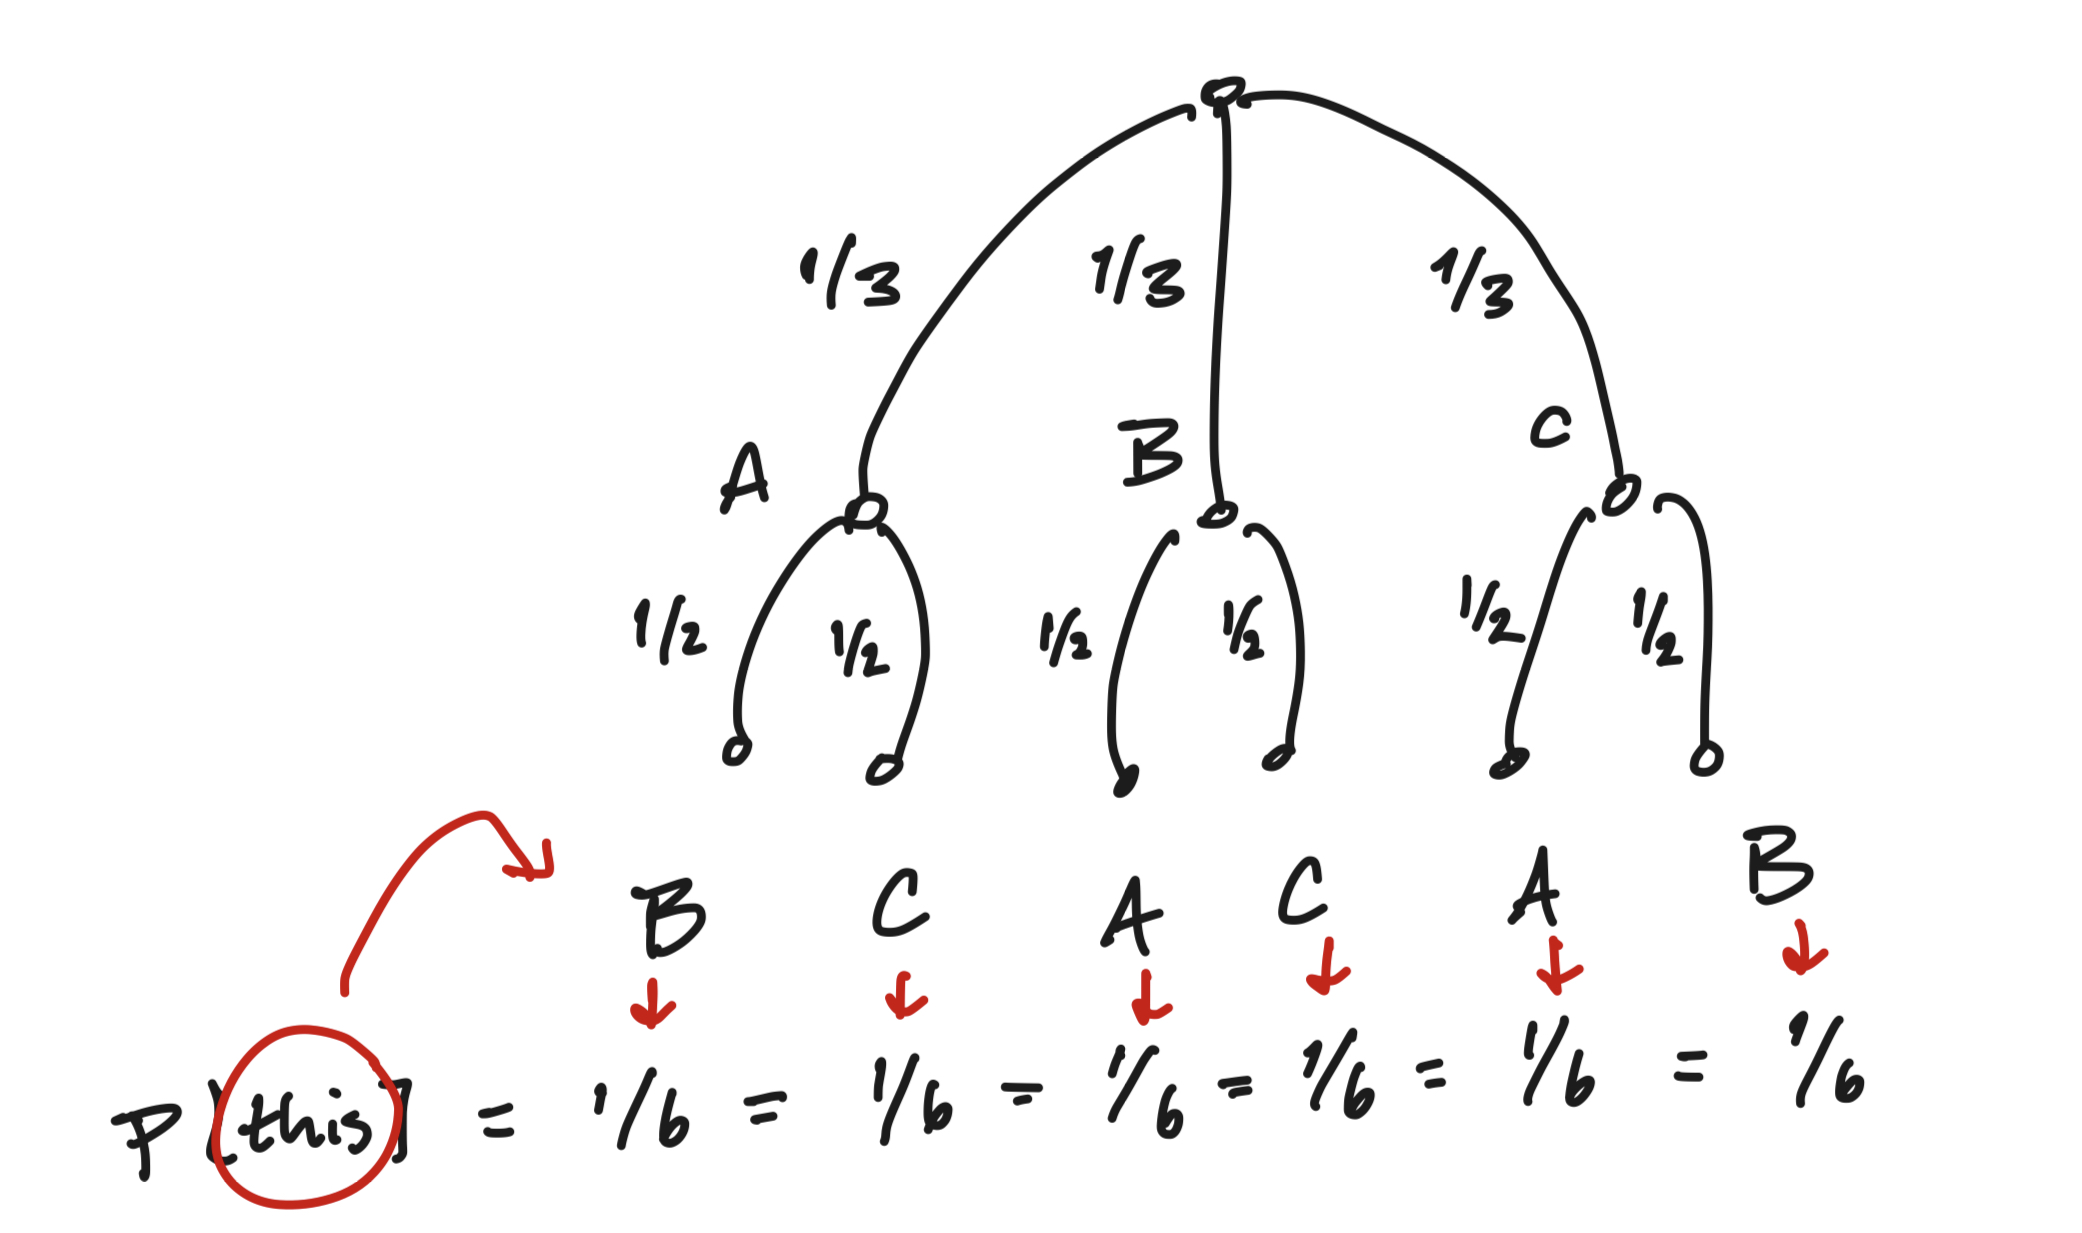 1/3 1/3 1/3
A B C
1/2 1/2 1/2 1/2 1/2 1/2
B C A C A B
P[this] = 1/6 = 1/6 = 1/6 = 1/6 = 1/6 = 1/6